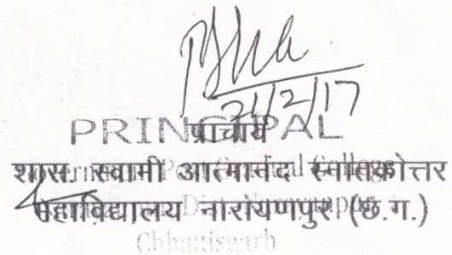 21/2/17
PRINCIPAL
प्राचार्य
शास. स्वामी आत्मानंद स्नातकोत्तर
महाविद्यालय नारायणपुर (छ.ग.)
Chhattisgarh